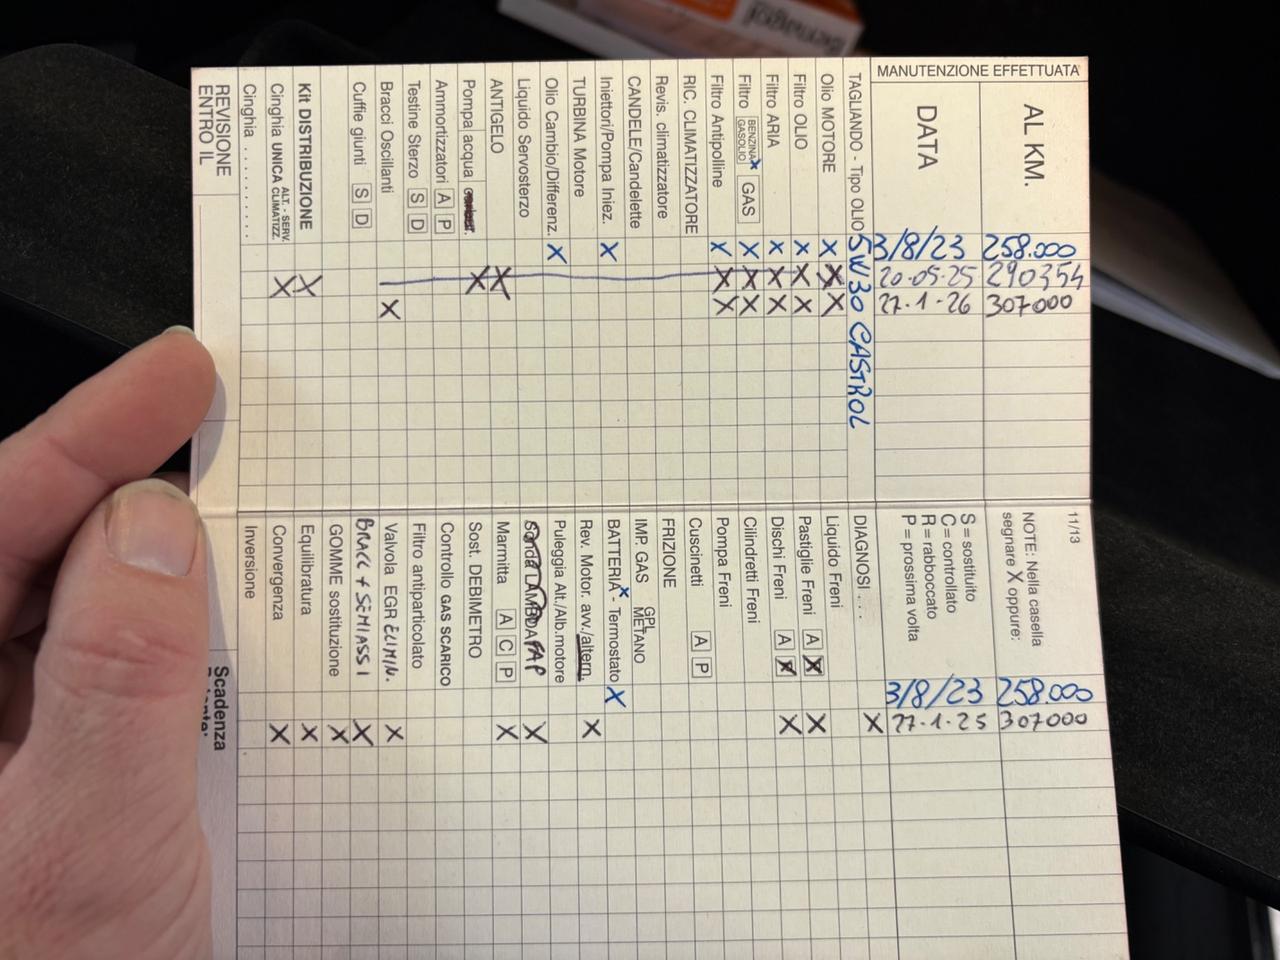 Benagol
MANUTENZIONE EFFETTUATA
AL KM. 258.000 290354 307000
DATA 3/8/23 20-05-25 27-1-26
TAGLIANDO - Tipo OLIO 5W30 CASTROL
Olio MOTORE X X X
Filtro OLIO X X X
Filtro ARIA X X X
Filtro BENZINA X GASOLIO GAS X X X
Filtro Antipolline X X X
RIC. CLIMATIZZATORE
Revis. climatizzatore
CANDELE/Candelette
Iniettori/Pompa Iniez. X
TURBINA Motore
Olio Cambio/Differenz. X
Liquido Servosterzo
ANTIGELO X
Pompa acqua X
Ammortizzatori A P
Testine Sterzo S D
Bracci Oscillanti X
Cuffie giunti S D
Kit DISTRIBUZIONE X
Cinghia UNICA ALT. - SERV. CLIMATIZZ. X
Cinghia ........
REVISIONE
ENTRO IL
11/13
NOTE: Nella casella
segnare X oppure:
S = sostituito
C = controllato
R = rabboccato
P = prossima volta
258.000 307000
3/8/23 27-1-25
DIAGNOSI .... X
Liquido Freni
Pastiglie Freni A X X
Dischi Freni A X X
Cilindretti Freni
Pompa Freni
Cuscinetti A P
FRIZIONE
IMP. GAS GPL METANO
BATTERIA X - Termostato X
Rev. Motor. avv./altern. X
Puleggia Alt./Alb.motore
Sonda LAMBDA FAP X
Marmitta A C P X
Sost. DEBIMETRO
Controllo GAS SCARICO
Filtro antiparticolato
Valvola EGR ELIMIN. X
BRACC + SEMIASSI X
GOMME sostituzione X
Equilibratura X
Convergenza X
Inversione
Scadenza